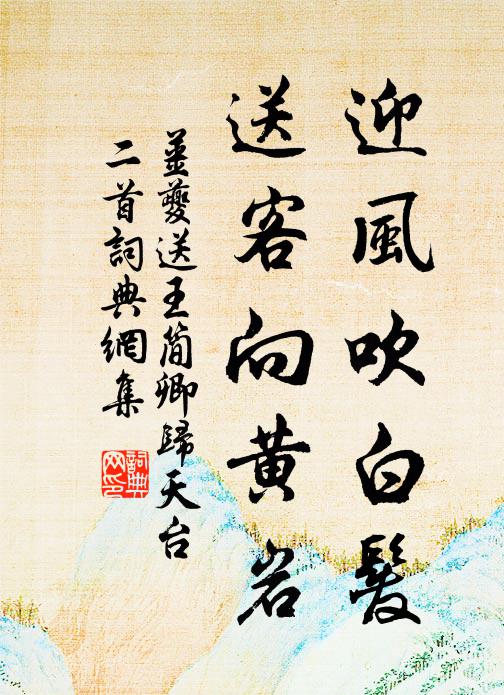 迎風吹白髮
送客向黃岩
姜夔送王簡卿歸天台
二首詞典網集
詞典
网印